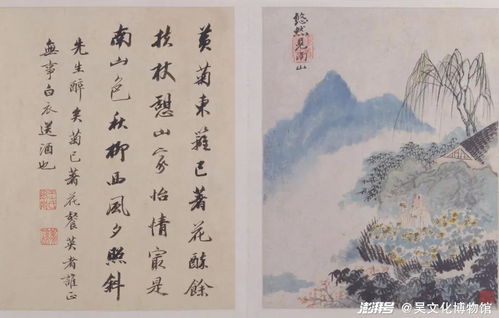 黃菊東籬已著花醉餘
扶杖憩山家怡情最是
南山色秋柳西風夕照斜
先生醉矣菊已著花餐英者誰正
無事白衣送酒也
悠然見南山
澎湃号@吴文化博物馆